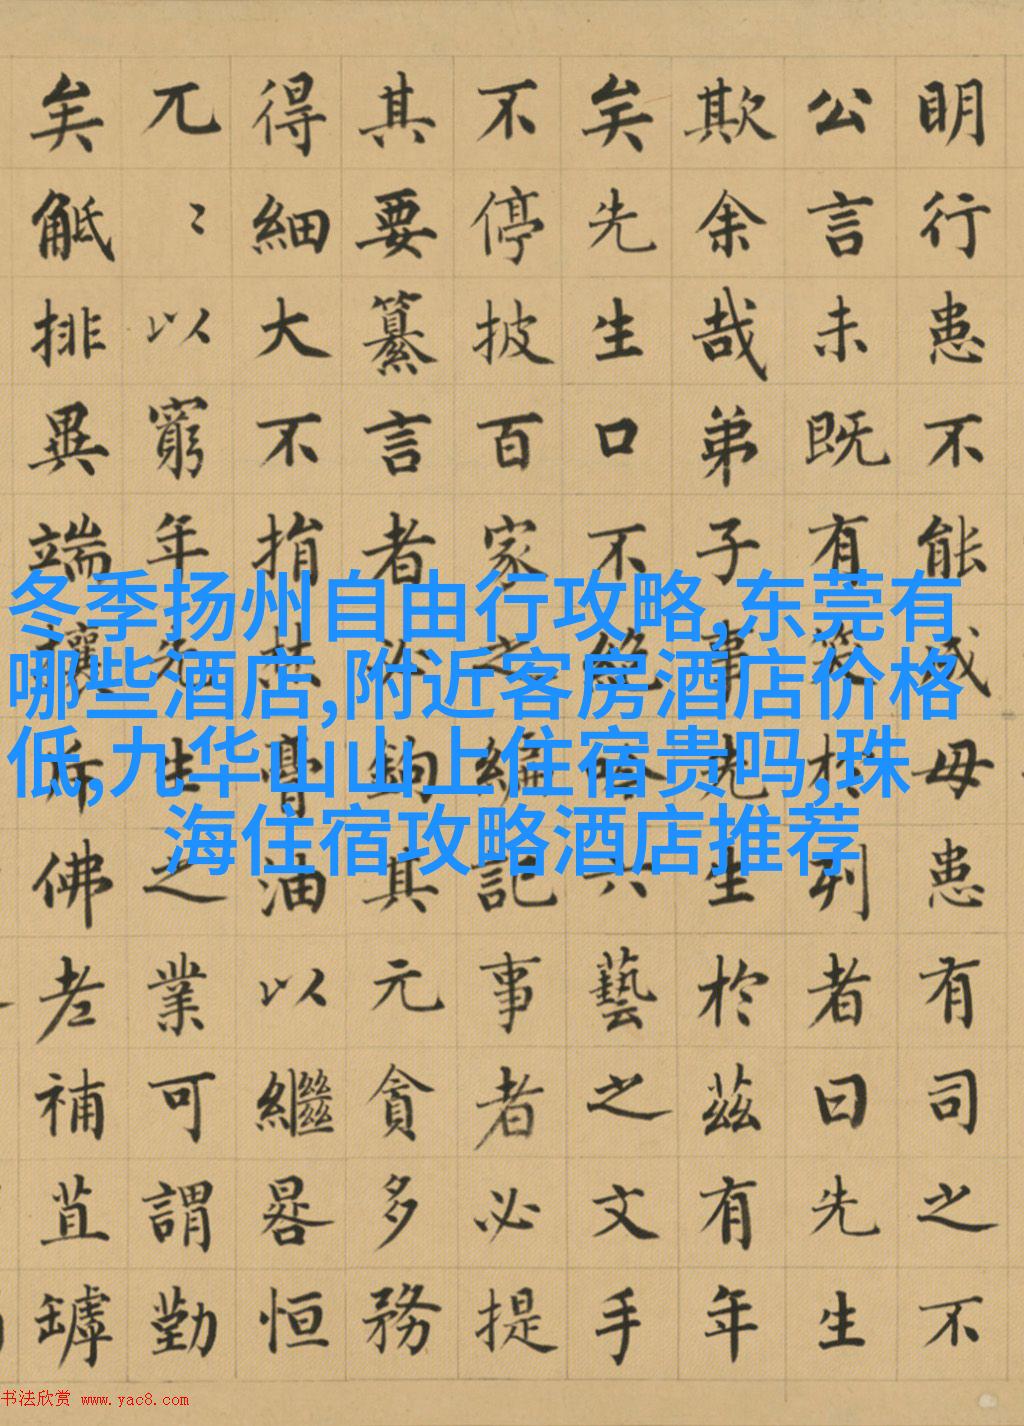 明行患不能成毋患有司之不
公言未既有笑於列者曰先生
欺余哉弟子事先生於茲有年
矣先生口不絶吟六藝之文手
不停披百家之編記事者必提
其要纂言者必鉤其元貪多務
得細大不捐焚膏油以繼晷恒
兀〻以窮年先生之業可謂勤
矣觝排異端攘斥佛老補苴罅
冬季扬州自由行攻略,东莞有
哪些酒店,附近客房酒店价格
低,九华山山上住宿贵吗,珠
海住宿攻略酒店推荐
书法欣赏 www.yac8.com